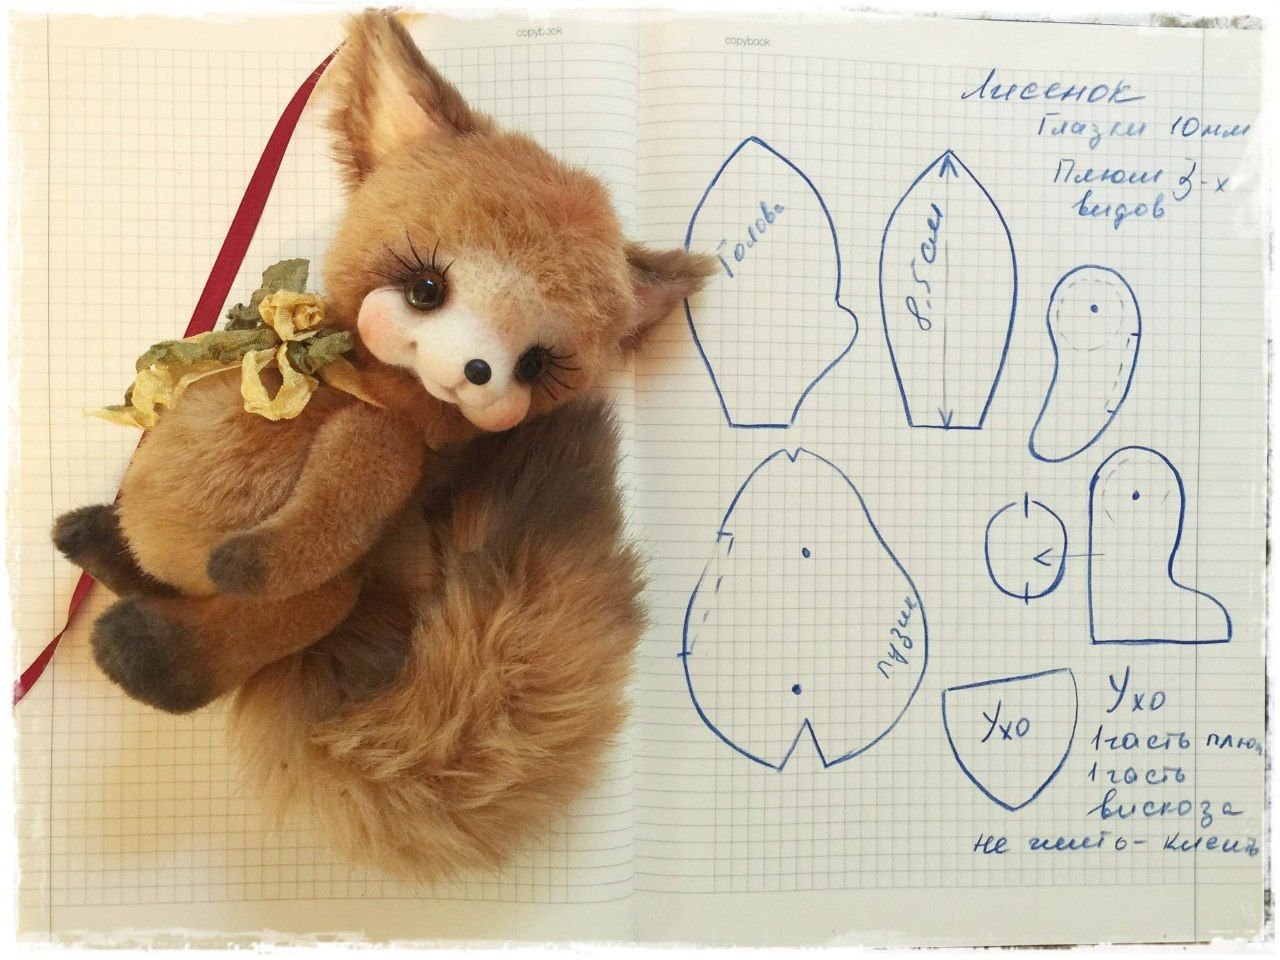 copybook
copybook
Лисенок
Глазки 10мм
Плюш 3-х
видов
Голова
8.5см
пузик
Ухо
Ухо
1 часть плюш
1 часть
вискоза
не шить - клеить